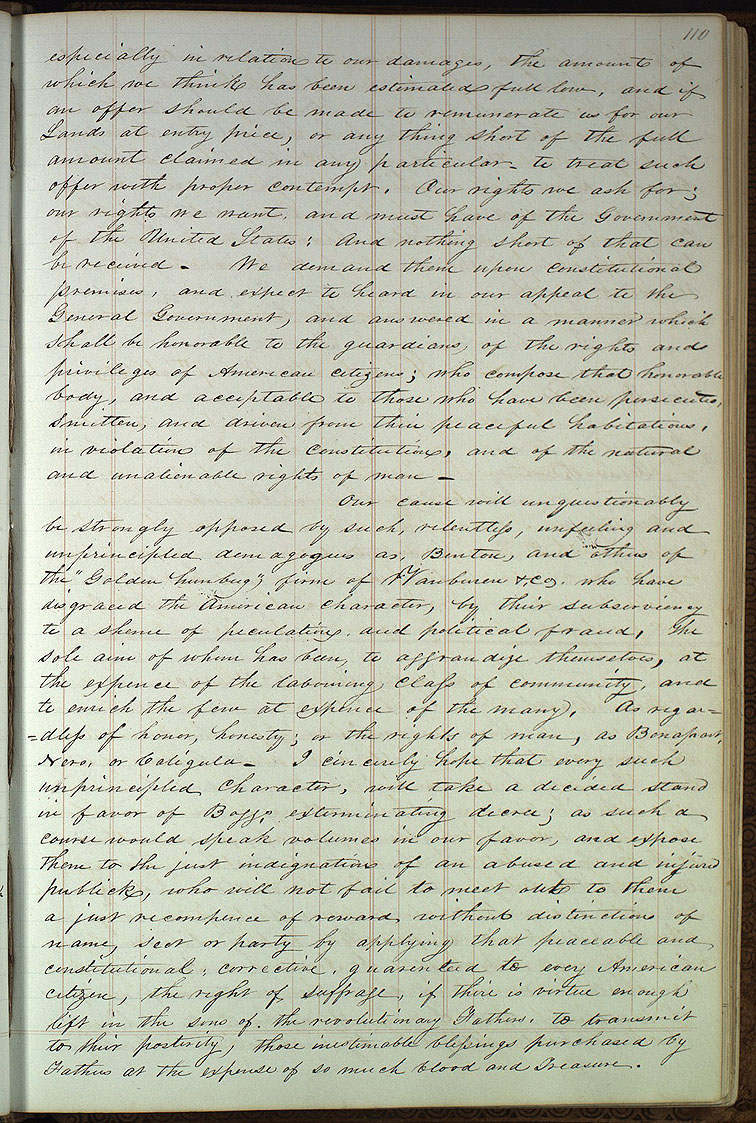 110
especially in relation to our damages, the amount of
which we think has been estimated full low, and if
an offer should be made to remunerate us for our
Lands at entry price, or any thing short of the full
amount claimed in any particular - to treat such
offer with proper contempt. Our rights we ask for;
our rights we want, and must have of the Government
of the United States; And nothing short of that can
be received - We demand them upon constitutional
premises, and expect to heard in our appeal to the
General Government, and answered in a manner which
shall be honorable to the guardians, of the rights and
privileges of American citizens; who compose that honorable
body, and acceptable to those who have been persecuted,
Smitten, and driven from their peaceful habitations,
in violation of the constitution, and of the natural
and unalienable rights of man -
Our cause will unquestionably
be strongly opposed by such, relentless, unfeeling and
unprincipled demagogues as, Benton, and others of
the "Golden humbug", firm of Vanburen & co, who have
disgraced the American character, by their subserviency
to a sheme of peculation, and political fraud, The
sole aim of whom has been, to aggrandize themselves, at
the expence of the labouring class of community, and
to enrich the few at expence of the many. As regar=
=dless of honor, honesty; or the rights of man, as Bonapart,
Nero, or Caligula - I cincerely hope that every such
unprincipled Character, will take a decided stand
in favor of Boggs exterminating decree; as such a
course would speak volumes in our favor, and expose
them to the just indignation of an abused and injured
publick, who will not fail to meet out to them
a just recompence of reward without distinction of
name, sect or party by applying that peaceable and
constitutional, corrective, guarenteed to every American
citizen, the right of suffrage, if there is virtue enough
left in the sons of the revolutionary Fathers, to transmit
to their posterity, those inestimable blessings purchased by
Fathers at the expense of so much blood and Treasure.